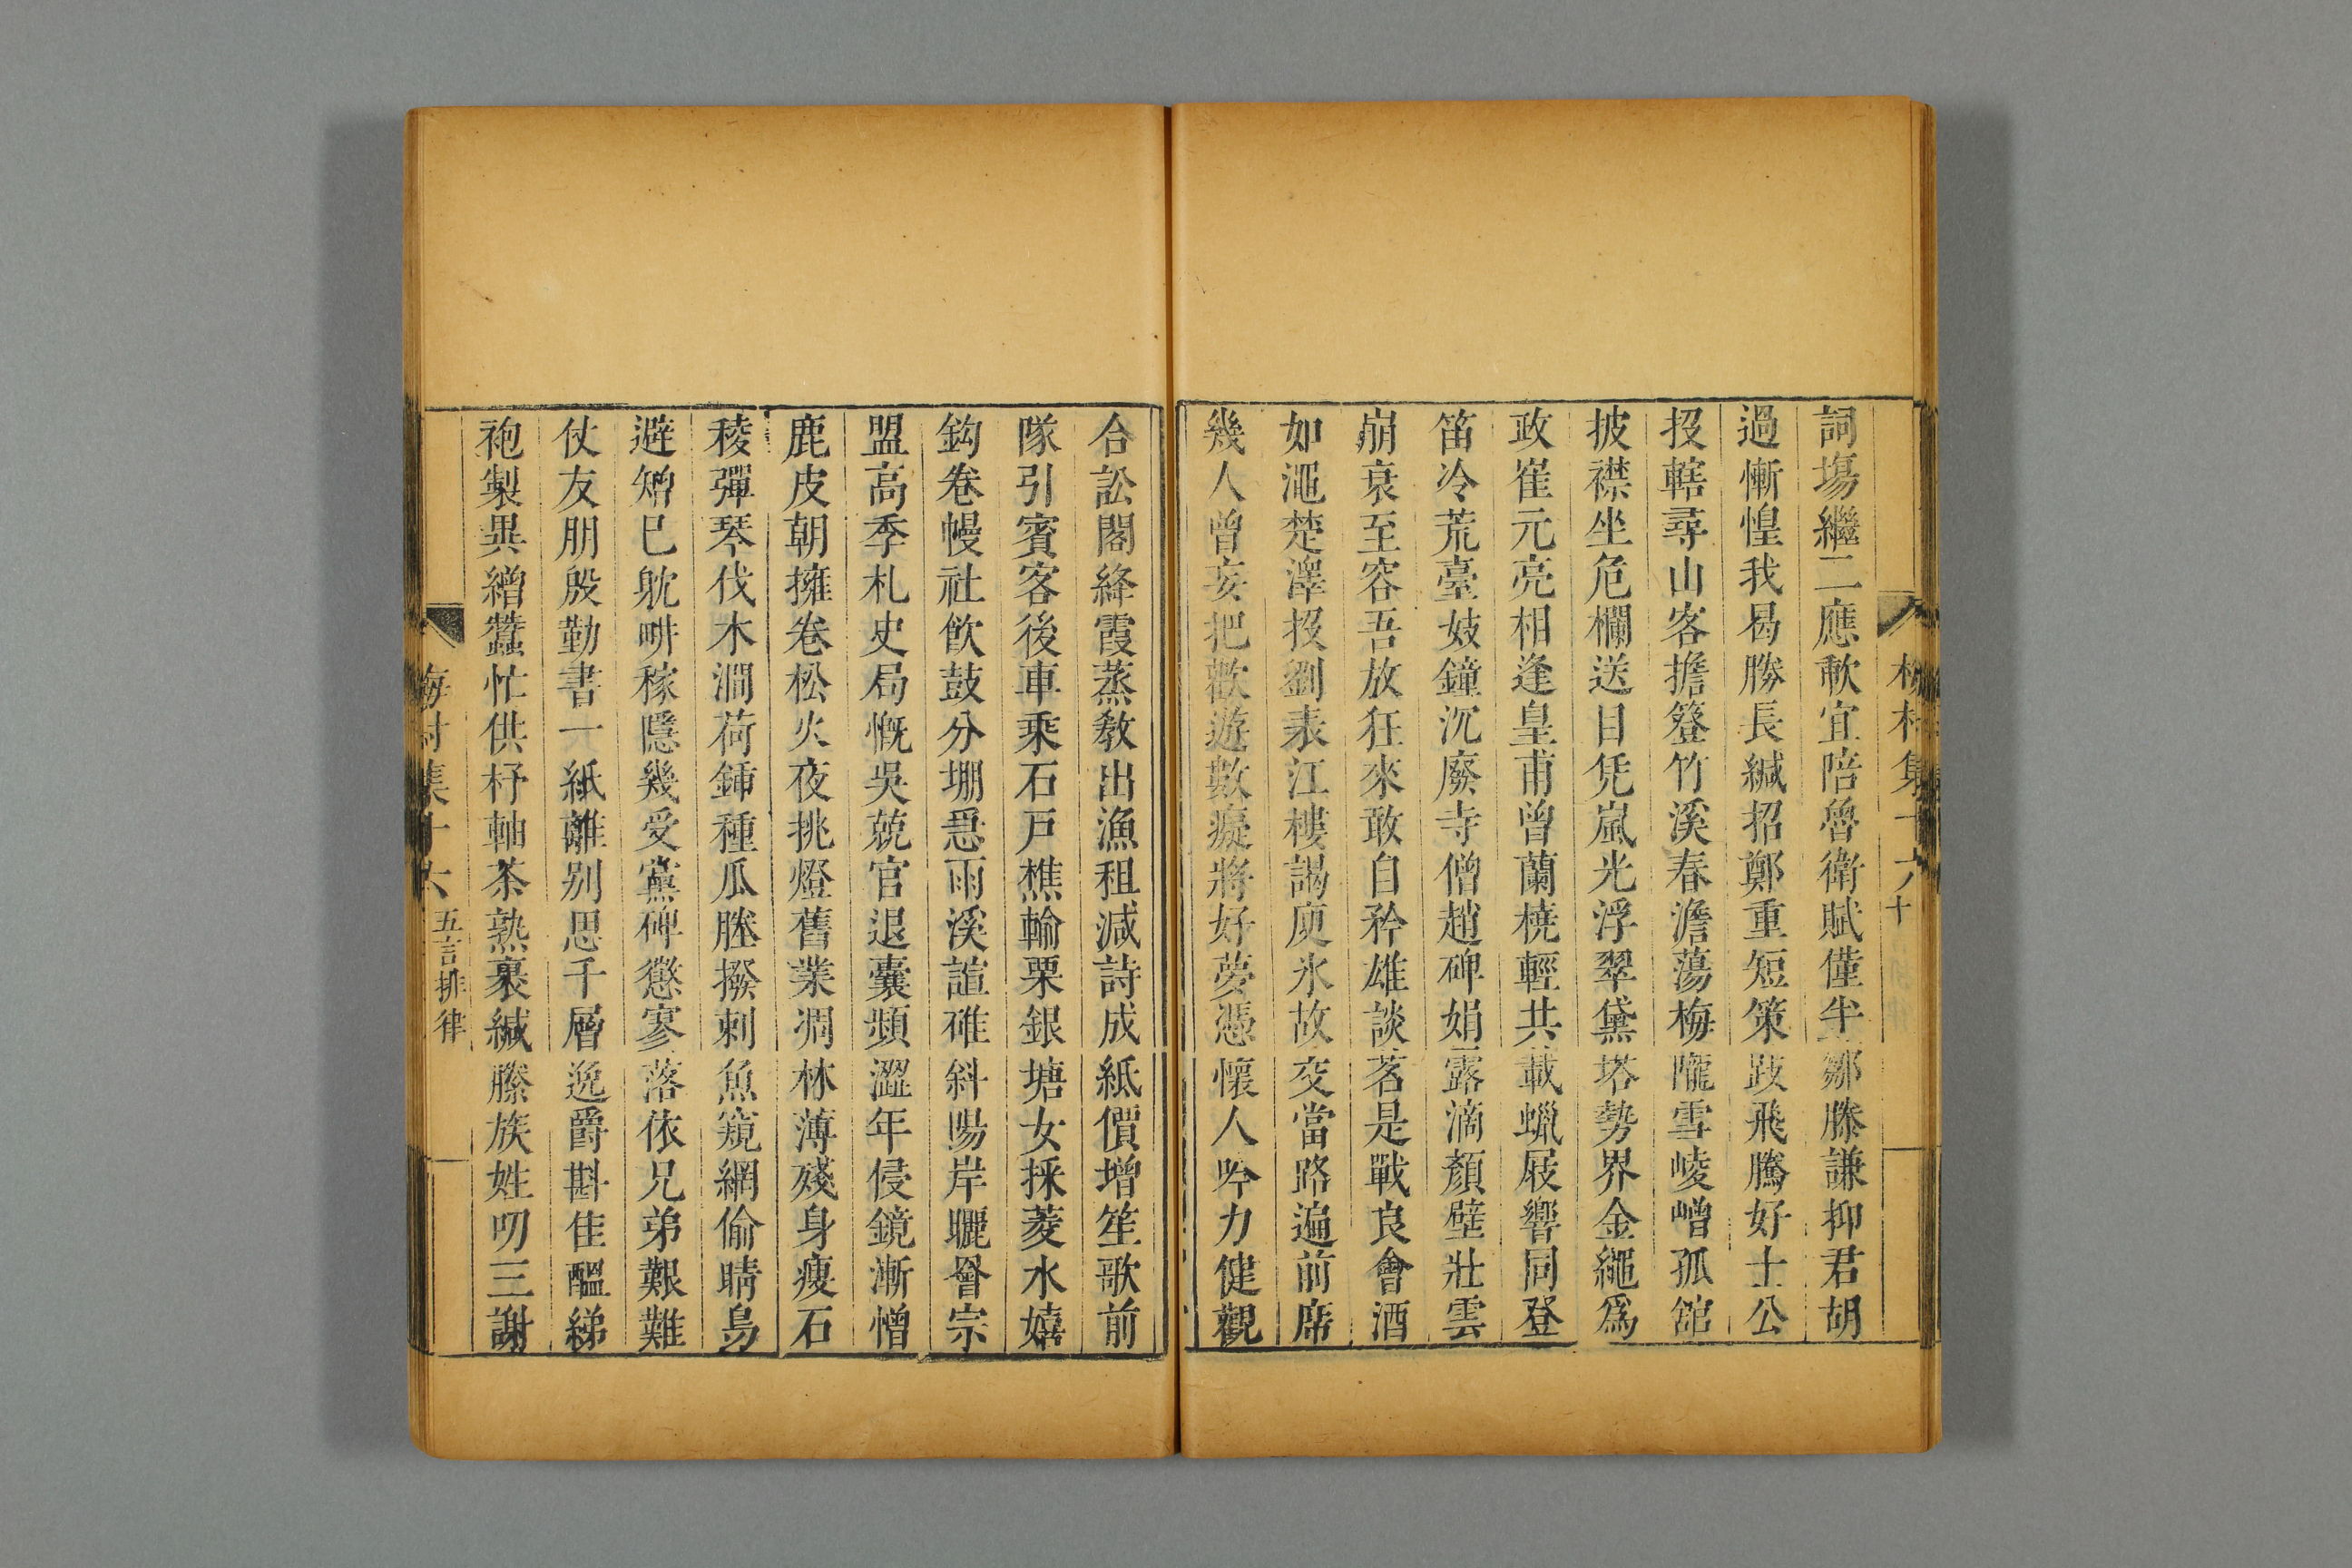 梅村集十六
十
詞塲繼二應軟宜陪魯衛賦僅半鄒滕謙抑君胡
過慚惶我曷勝長緘招鄭重短策跂飛騰好士公
投轄尋山客擔簦竹溪春澹蕩梅隴雪崚嶒孤舘
披襟坐危欄送目凭嵐光浮翠黛塔勢界金繩爲
政崔元亮相逢皇甫曾蘭橈輕共載蠟屐響同登
笛冷荒臺妓鐘沉廢寺僧趙碑娟露滴顏壁壯雲
崩衰至容吾放狂來敢自矜雄談茗是戰良會酒
如澠楚澤投劉表江樓謁庾氷故交當路遍前席
幾人曾妄把歡遊數癡將好夢憑懷人吟力健觀
合訟閣絳霞蒸教出漁租減詩成紙價增笙歌前
隊引賓客後車乘石戸樵輸栗銀塘女採菱水嬉
鈎卷幔社飲鼓分堋悬雨溪諠碓斜陽岸曬罾宗
盟高季札史局慨吳兢官退囊頻澀年侵鏡漸憎
鹿皮朝擁卷松火夜挑燈舊業凋林薄殘身瘦石
稜彈琴伐木澗荷鍤種瓜塍撥刺魚窺網偷晴鳥
避矰巳躭畊稼隱幾受黨碑懲寥落依兄弟艱難
仗友朋殷勤書一紙離别思千層逸爵斟佳醖綈
袍製異繒蠶忙供杼軸茶熟裹緘縢族姓叨三謝
梅村集十六
五言排律